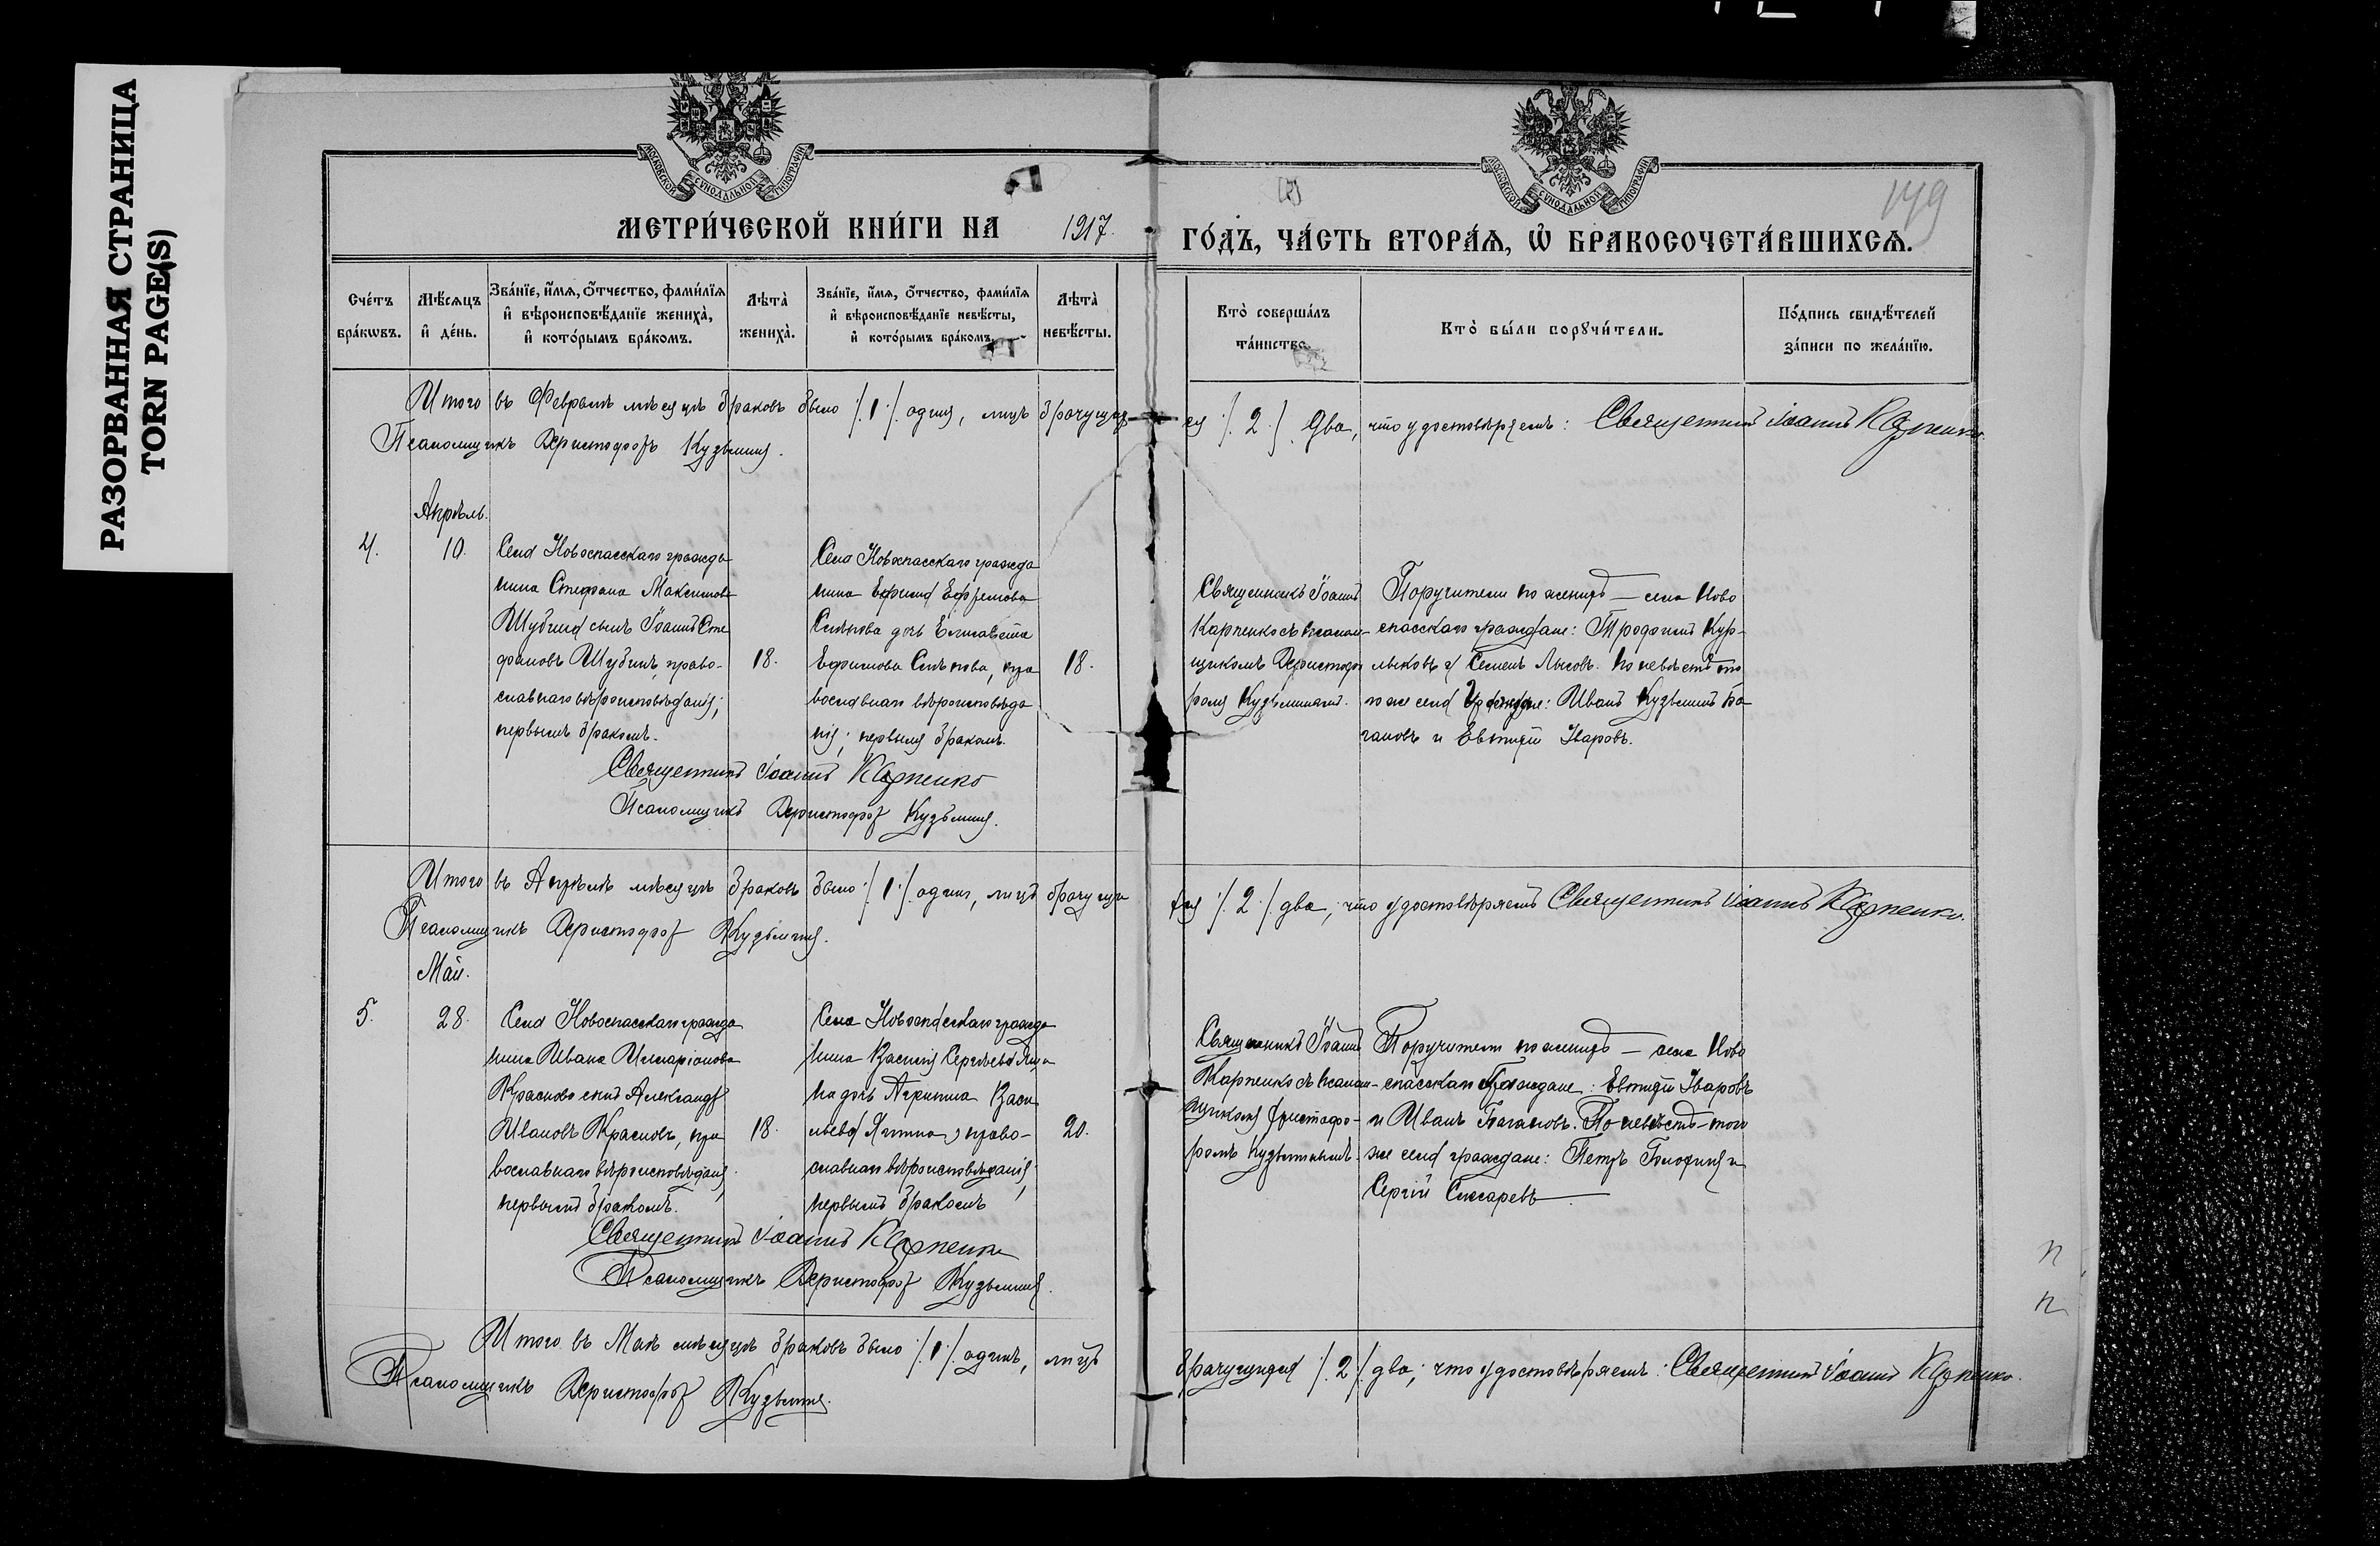 РАЗОРВАННАЯ СТРАНИЦА
TORN PAGE(S)
МОСКОВСКОЙ СѴНОДАЛЬНОЙ ТИПОГРАФІИ
МОСКОВСКОЙ СѴНОДАЛЬНОЙ ТИПОГРАФІИ
149
МЕТРИ́ЧЕСКОЙ КНИ́ГИ НА 1917.
ГО́ДЪ, ЧА́СТЬ ВТОРА́Ѧ, Ѽ БРАКОСОЧЕТА́ВШИХСѦ.
Сче́тъ бра́кѡвъ.
Мѣ́сѧцъ и҆ де́нь.
Зва́нїе, и҆́мѧ, ѻ҆́тчество, фами́лїѧ
и҆ вѣроисповѣ́данїе жениха̀,
и҆ кото́рымъ бра́комъ.
Лѣта̀ жениха̀.
Зва́нїе, и҆́мѧ, ѻ҆́тчество, фами́лїѧ
и҆ вѣроисповѣ́данїе невѣ́сты,
и҆ кото́рымъ бра́комъ.
Лѣта̀ невѣ́сты.
Кто̀ соверша́лъ
та́инство.
Кто̀ бы́ли порꙋчи́тели.
По́дпись свидѣ́телей
за́писи по жела́нїю.
Итого въ Февралѣ мѣсяцѣ браковъ было /.1./ одинъ, лицъ брачущих
ся /.2./ два, что удостовѣряемъ: Священникъ Іоаннъ Карпенко
Псаломщикъ Христофоръ Кузьминъ.
Апрѣль.
4.
10.
Села Новоспасскаго гражда
нина Стефана Максимова
Шубина сынъ Іоаннъ Сте
фановъ Шубинъ, право-
славнаго вѣроисповѣданія;
первымъ бракомъ.
18.
Села Новоспасскаго гражда
нина Ефима Ефремова
дочь Елисавета
Ефимова пра
вославнаго вѣроисповѣда
нія; первымъ бракомъ.
18.
Священникъ Іоаннъ
Карпенко съ псалом-
щикомъ Христофо
ромъ Кузьминымъ.
Поручители по женихѣ — села Ново
спасскаго граждане: Трофимъ Кур-
и Семенъ Лысовъ. По невѣстѣ то
го же села граждане: Иванъ Кузьминъ Ба
гановъ и Евтихій Уваровъ.
Священникъ Іоаннъ Карпенко
Псаломщикъ Христофоръ Кузьминъ.
Итого въ Апрѣлѣ мѣсяцѣ браковъ было /.1./ одинъ, лицъ брачущи
хся /.2./ два; что удостовѣряемъ Священникъ Іоаннъ Карпенко.
Псаломщикъ Христофоръ Кузьминъ.
Май.
5.
28.
Села Новоспасскаго гражда
нина Ивана Илларіонова
Краснова сынъ Александръ
Ивановъ Красновъ, пра
вославнаго вѣроисповѣданія,
первымъ бракомъ.
18.
Села Новоспасскаго гражда
нина Василія Сергѣева
на дочь Агрипина Васи
льева право-
славнаго вѣроисповѣданія,
первымъ бракомъ
20.
Священникъ Іоаннъ
Карпенко съ псалом-
щикомъ Христофо-
ромъ Кузьминымъ.
Поручители по женихѣ — села Ново
спасскаго граждане: Евтихій Уваровъ
и Иванъ Багановъ. По невѣстѣ — того
же села граждане: Петръ и
Сергій Слесаревъ
Священникъ Іоаннъ Карпенко
Псаломщикъ Христофоръ Кузьминъ.
Итого въ Маѣ мѣсяцѣ браковъ было /.1./ одинъ, лицъ
брачущихся /.2./ два; что удостовѣряемъ: Священникъ Іоаннъ Карпенко.
Псаломщикъ Христофоръ Кузьминъ.